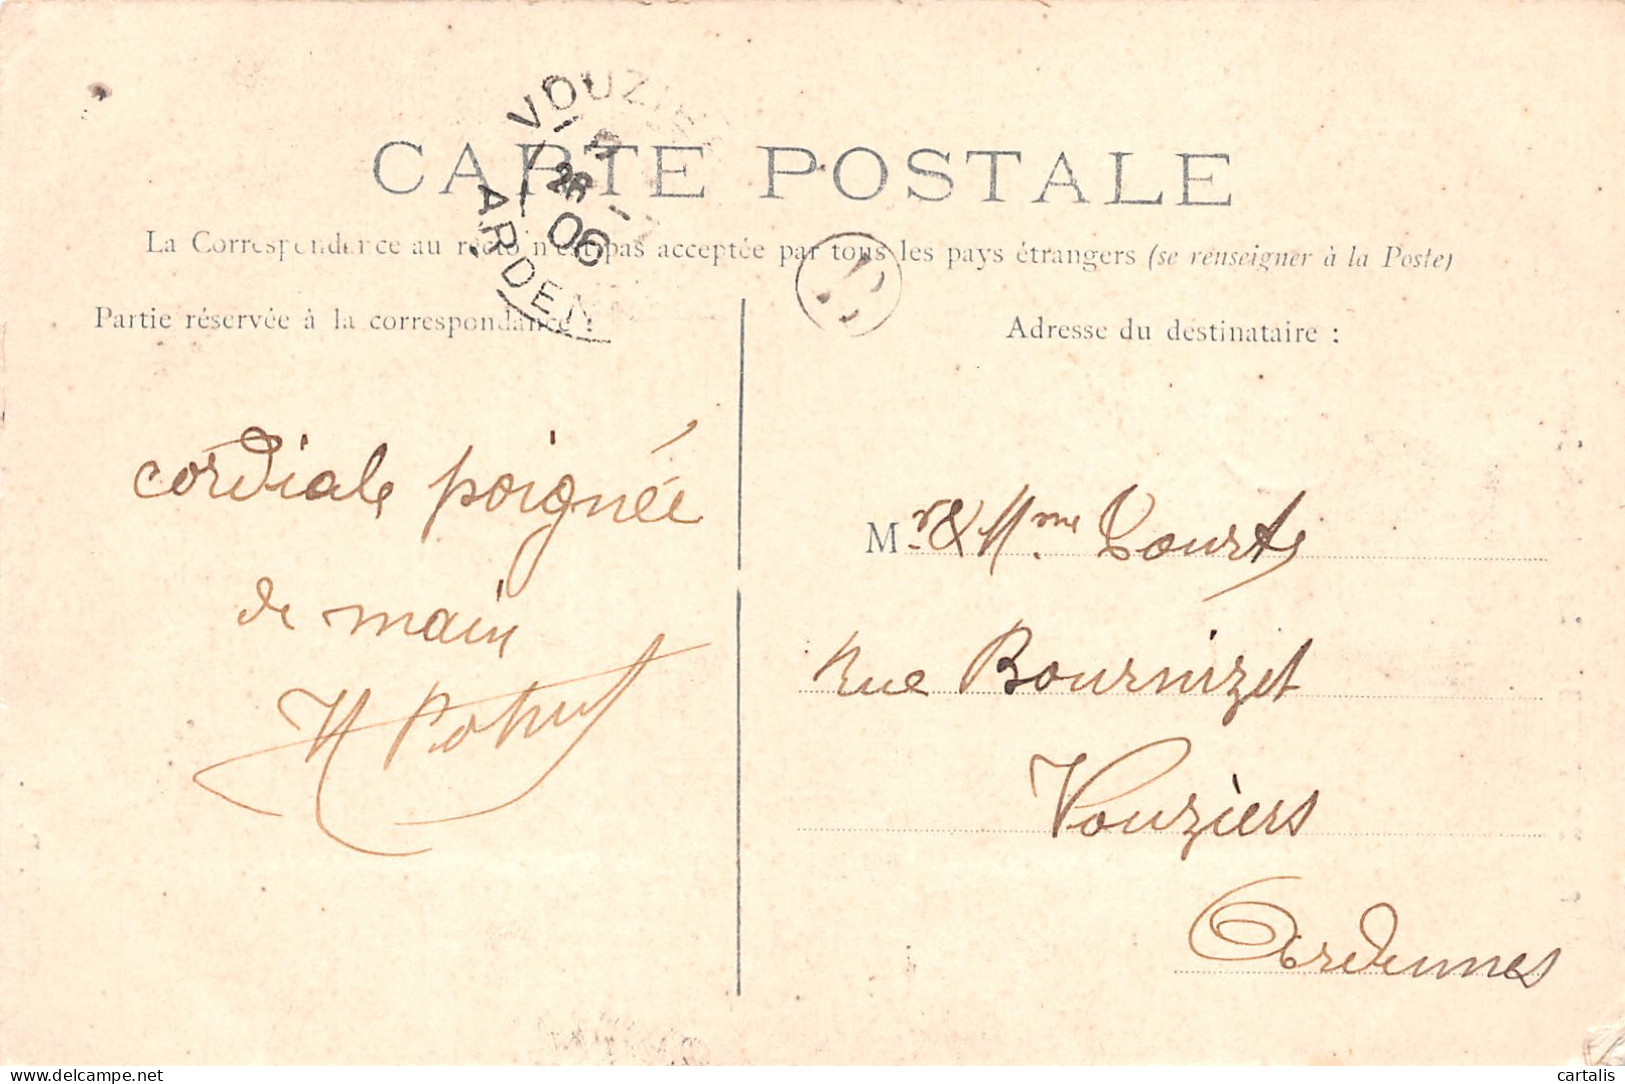 CARTE POSTALE
La Correspondance au recto n'est pas acceptée par tous les pays étrangers (se renseigner à la Poste)
Partie réservée à la correspondance :
Adresse du destinataire :
VOUZIE
26
06
ARDEN
cordiale poignée
de main
Mr & Mme
Rue Bournizet
Vouziers
Ardennes
cartalis